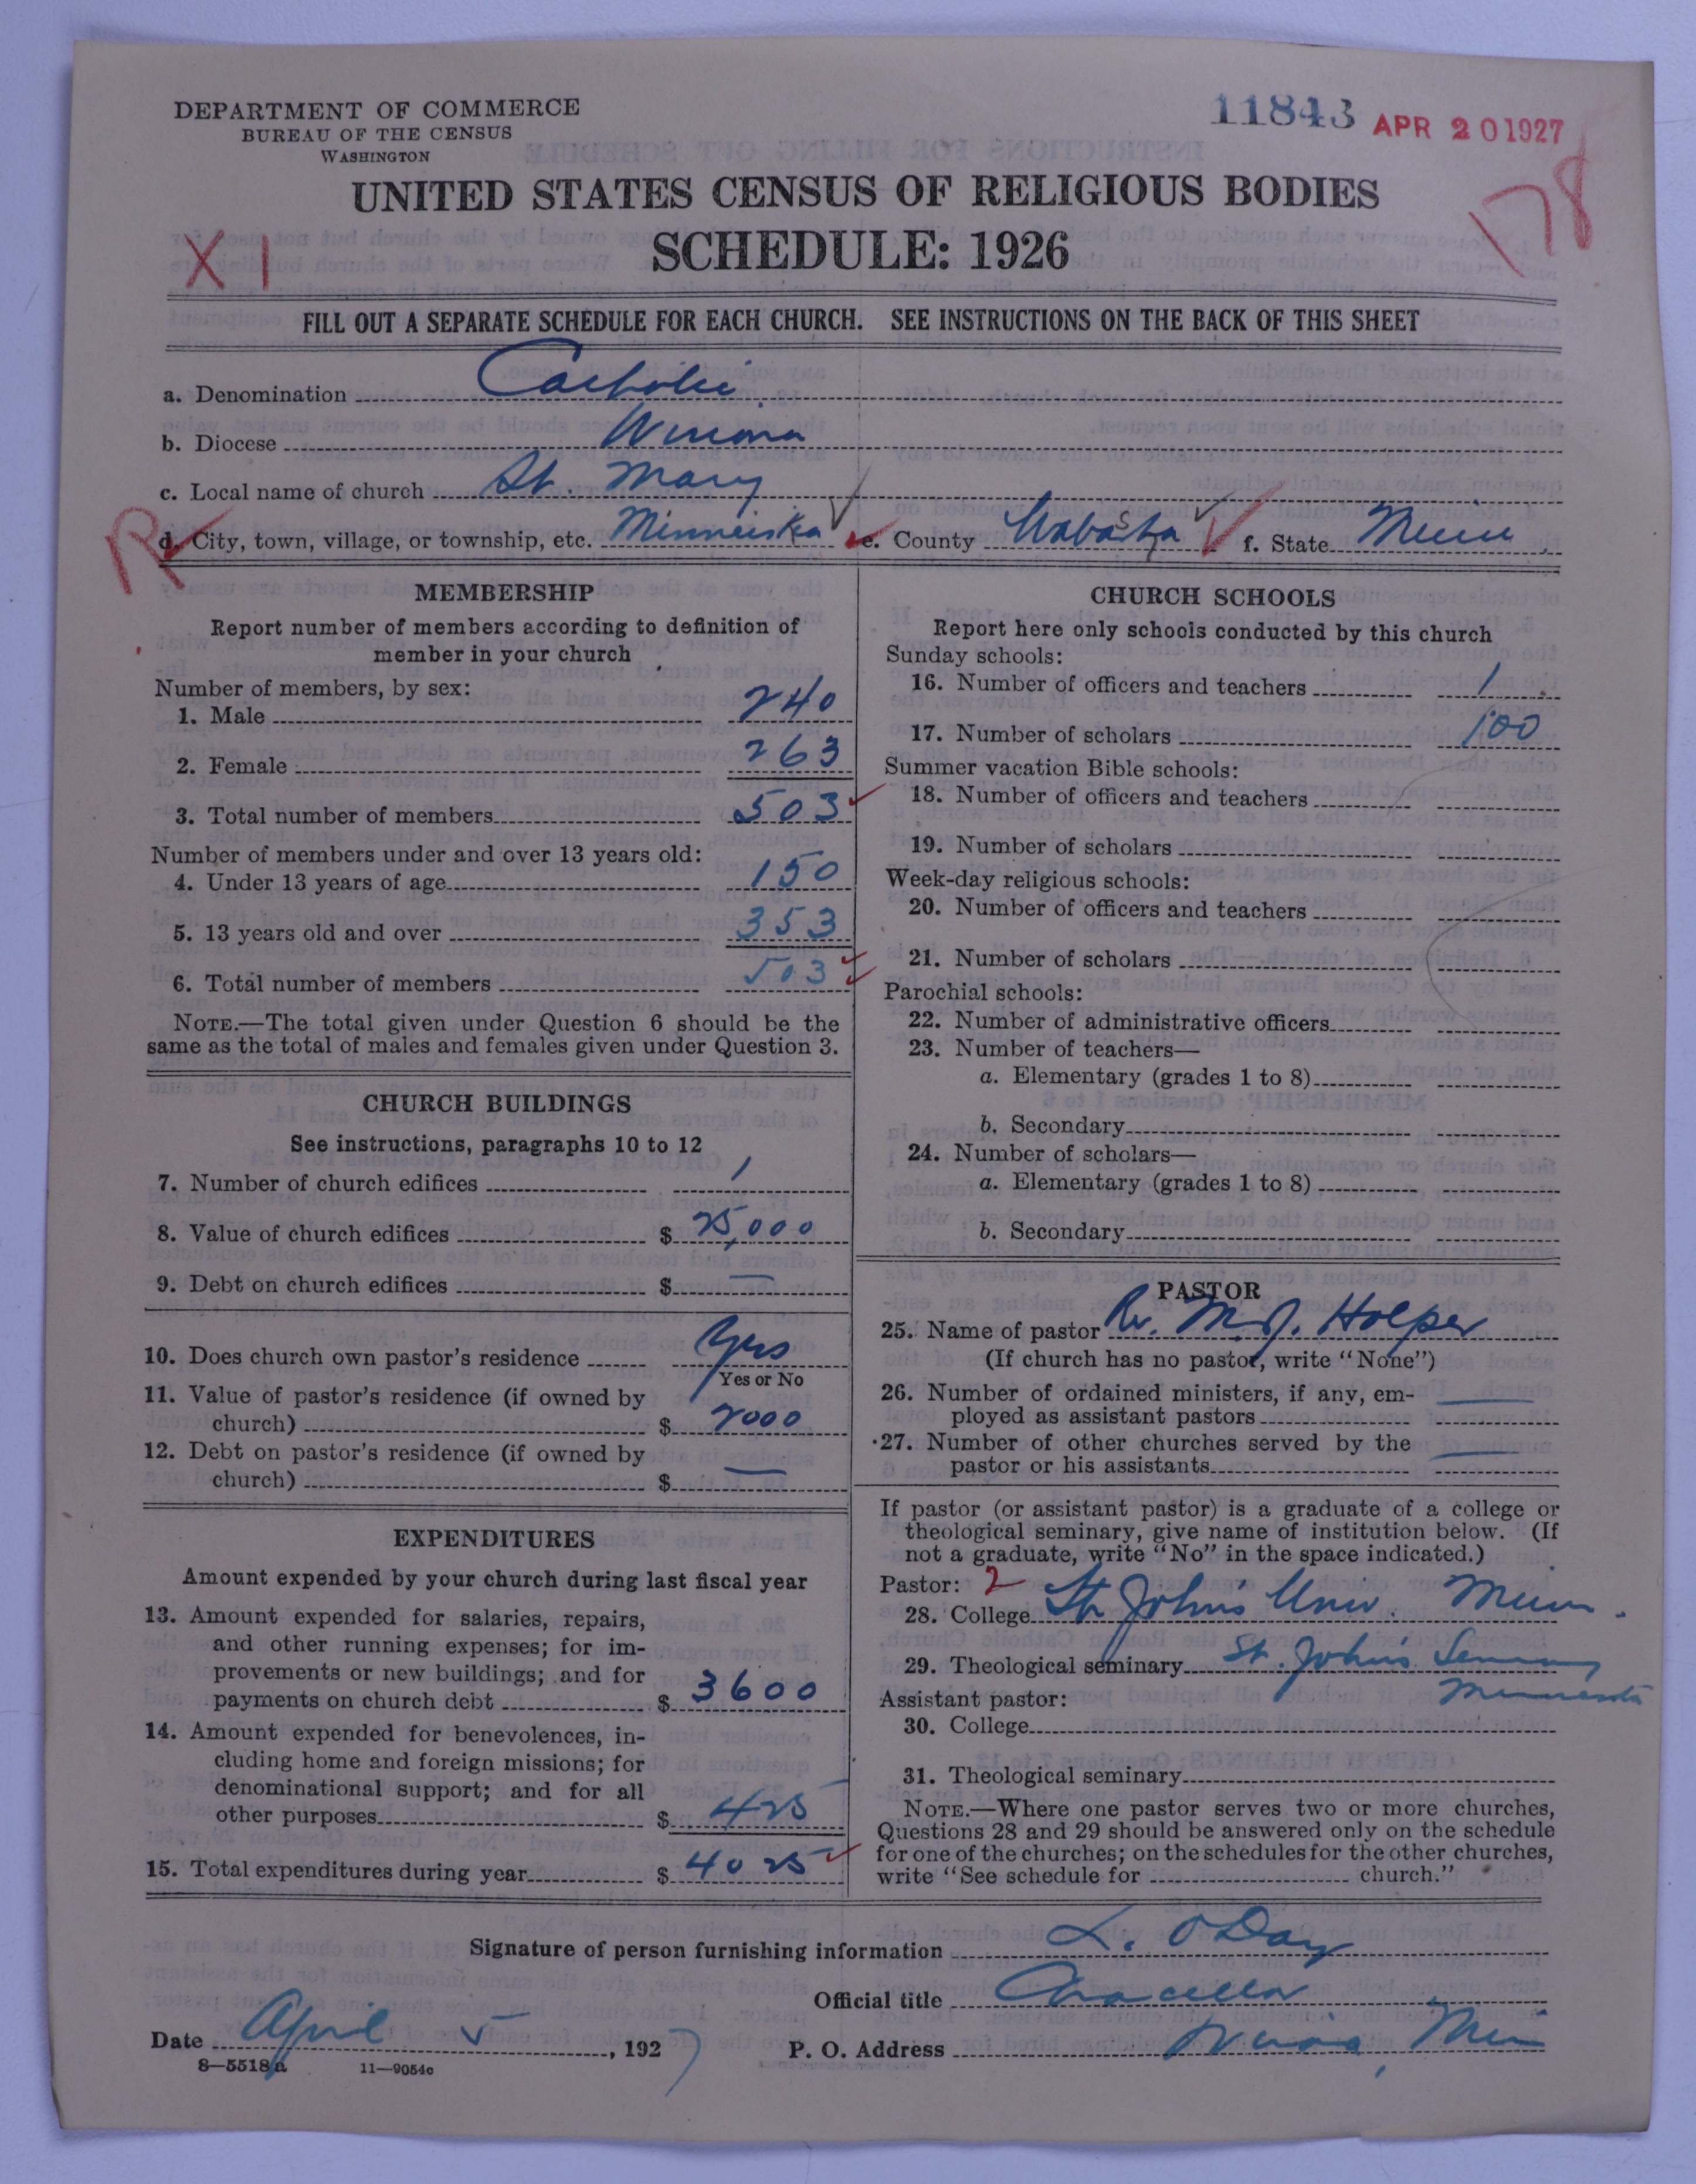 DEPARTMENT OF COMMERCE
BUREAU OF THE CENSUS
WASHINGTON
11843 APR 20 1927
178
UNITED STATES CENSUS OF RELIGIOUS BODIES
XI
SCHEDULE: 1926
FILL OUT A SEPARATE SCHEDULE FOR EACH CHURCH. SEE INSTRUCTIONS ON THE BACK OF THIS SHEET
a. Denomination Catholic
b. Diocese Winona
c. Local name of church St. Mary
R
d. City, town, village, or township, etc. Minneiska e. County Wabasha f. State Minn.
MEMBERSHIP
Report number of members according to definition of
member in your church
Number of members, by sex:
1. Male 240
2. Female 263
3. Total number of members 503
Number of members under and over 13 years old:
4. Under 13 years of age 150
5. 13 years old and over 353
6. Total number of members 503
NOTE.—The total given under Question 6 should be the
same as the total of males and females given under Question 3.
CHURCH BUILDINGS
See instructions, paragraphs 10 to 12
7. Number of church edifices 1
8. Value of church edifices $ 25,000
9. Debt on church edifices $ —
10. Does church own pastor's residence Yes
Yes or No
11. Value of pastor's residence (if owned by
church) $ 2000
12. Debt on pastor's residence (if owned by
church) $ —
EXPENDITURES
Amount expended by your church during last fiscal year
13. Amount expended for salaries, repairs,
and other running expenses; for im-
provements or new buildings; and for
payments on church debt $ 3600
14. Amount expended for benevolences, in-
cluding home and foreign missions; for
denominational support; and for all
other purposes $ 425
15. Total expenditures during year $ 4025
CHURCH SCHOOLS
Report here only schools conducted by this church
Sunday schools:
16. Number of officers and teachers 1
17. Number of scholars 100
Summer vacation Bible schools:
18. Number of officers and teachers
19. Number of scholars
Week-day religious schools:
20. Number of officers and teachers
21. Number of scholars
Parochial schools:
22. Number of administrative officers
23. Number of teachers—
a. Elementary (grades 1 to 8)
b. Secondary
24. Number of scholars—
a. Elementary (grades 1 to 8)
b. Secondary
PASTOR
25. Name of pastor Rv. M. J. Holper
(If church has no pastor, write "None")
26. Number of ordained ministers, if any, em- —
ployed as assistant pastors
27. Number of other churches served by the —
pastor or his assistants
If pastor (or assistant pastor) is a graduate of a college or
theological seminary, give name of institution below. (If
not a graduate, write "No" in the space indicated.)
Pastor: 2
28. College St. John's Univ. Minn.
29. Theological seminary St. John's Seminary
Minnesota
Assistant pastor:
30. College
31. Theological seminary
NOTE.—Where one pastor serves two or more churches,
Questions 28 and 29 should be answered only on the schedule
for one of the churches; on the schedules for the other churches,
write "See schedule for church."
Signature of person furnishing information L. O'Day
Official title Chancellor
Date April 5, 1927 P. O. Address Winona, Minn
8—5518a 11—9054c